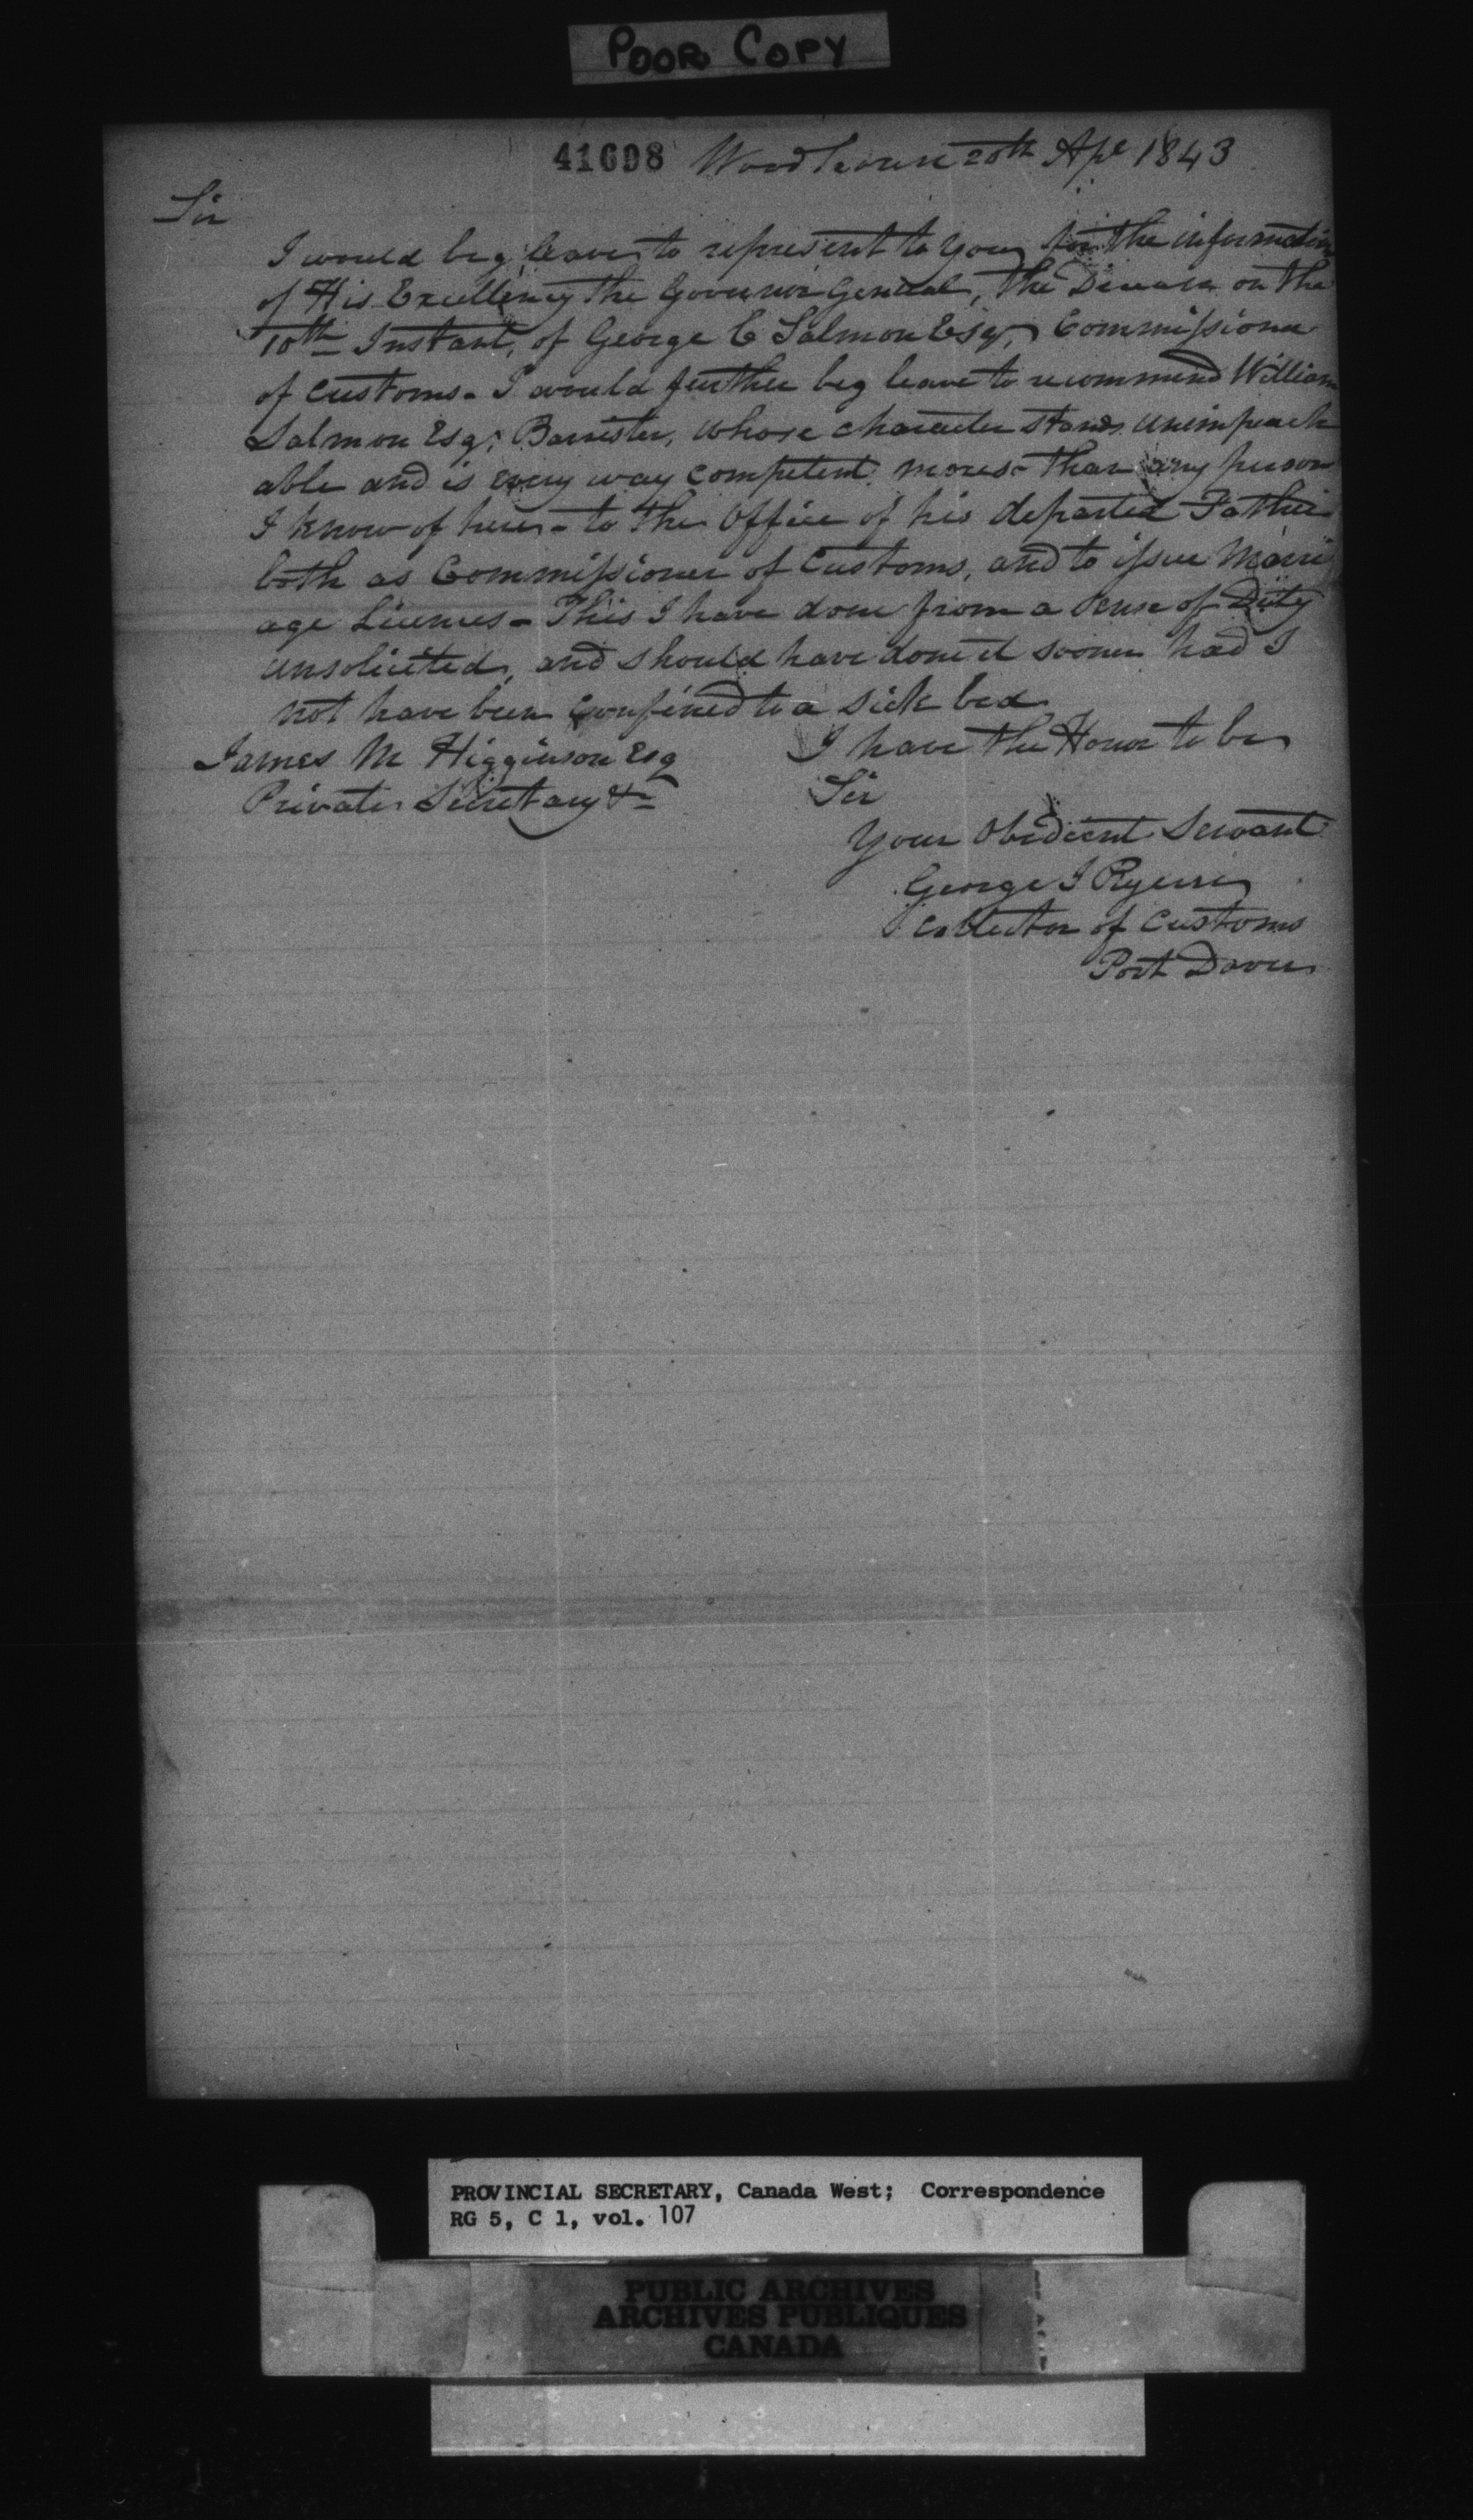 POOR COPY
41698 Woodhouse 20th Apl 1843
Sir
I would beg leave to represent to You for the information
of His Excellency the Governor General, the Decease on the
10th Instant, of George C Salmon Esqr, Commissioner
of Customs. I would further beg leave to recommend William
Salmon Esqr Barrister, whose character stands unimpeach
able and is every way competent more than any person
I know of here - to the Office of his departed Father
both as Commissioner of Customs, and to issue Marri
age Licences - This I have done from a sense of Duty
unsolicited, and should have done it sooner had I
not have been confined to a sick bed
I have the Honor to be
James M Higginson Esq
Private Secretary &c
Sir
Your Obedient Servant
George J Ryerse
Collector of Customs
Port Dover
PROVINCIAL SECRETARY, Canada West; Correspondence
RG 5, C 1, vol. 107
PUBLIC ARCHIVES
ARCHIVES PUBLIQUES
CANADA